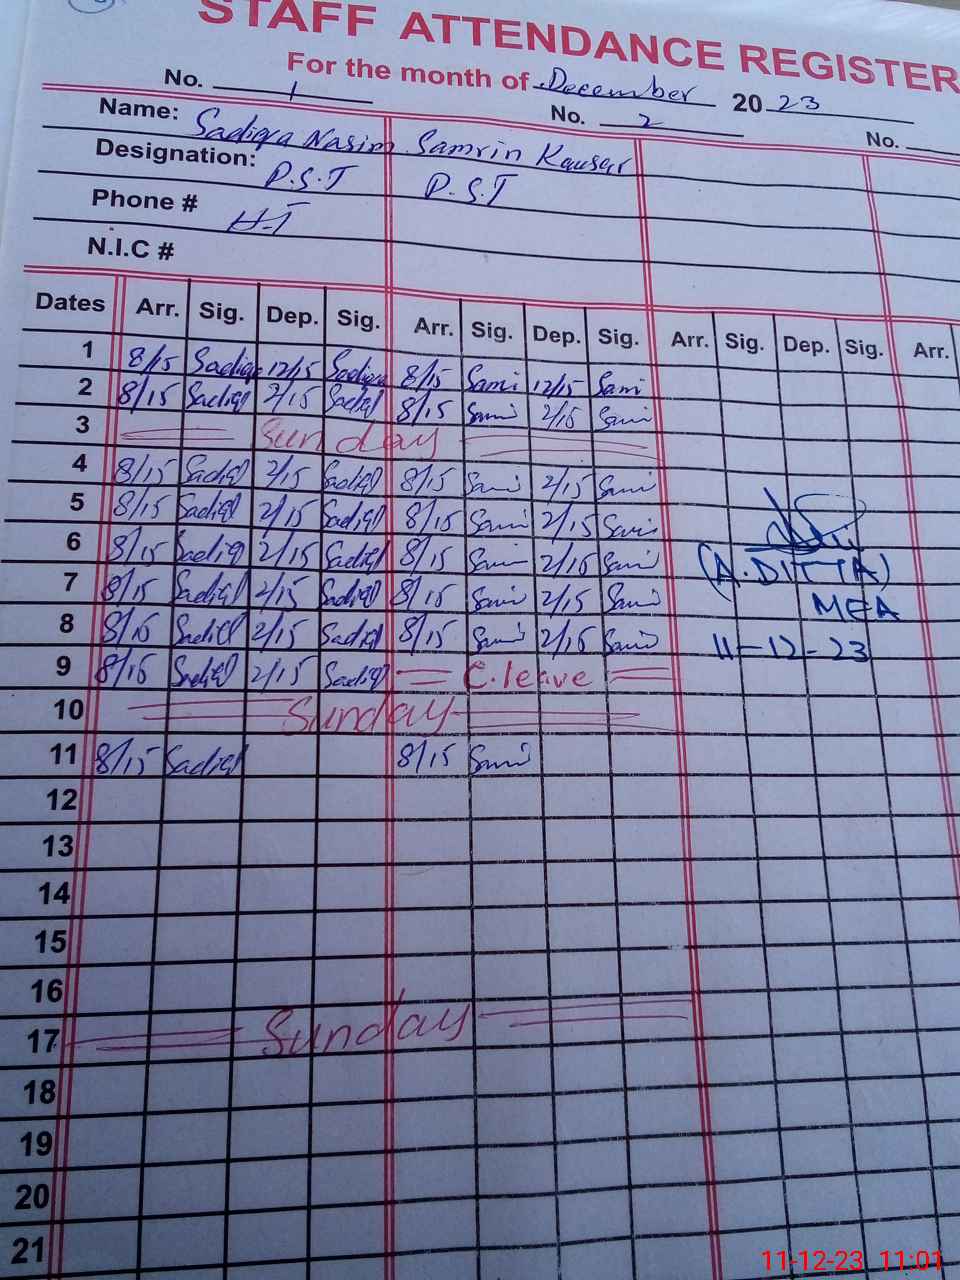 STAFF ATTENDANCE REGISTER
For the month of December 2023
No. 1 No. 2 No.
Name: Sadiqa Nasim Samrin Kausar
Designation: P.S.T P.S.T
Phone # H-T
N.I.C #
Dates Arr. Sig. Dep. Sig. Arr. Sig. Dep. Sig. Arr. Sig. Dep. Sig. Arr.
1 8/15 Sadiqa 12/15 Sadiqa 8/15 Sami 12/15 Sami
2 8/15 Sadiqa 2/15 Sadiqa 8/15 Sami 2/15 Sami
3 Sunday
4 8/15 Sadiqa 2/15 Sadiqa 8/15 Sami 2/15 Sami
5 8/15 Sadiqa 2/15 Sadiqa 8/15 Sami 2/15 Sami
6 8/15 Sadiqa 2/15 Sadiqa 8/15 Sami 2/15 Sami
(A.DITTA)
7 8/15 Sadiqa 2/15 Sadiqa 8/15 Sami 2/15 Sami
MEA
8 8/15 Sadiqa 2/15 Sadiqa 8/15 Sami 2/15 Sami
11-12-23
9 8/15 Sadiqa 2/15 Sadiqa C.leave
10 Sunday
11 8/15 Sadiqa 8/15 Sami
12
13
14
15
16
17 Sunday
18
19
20
21
11-12-23 11:01